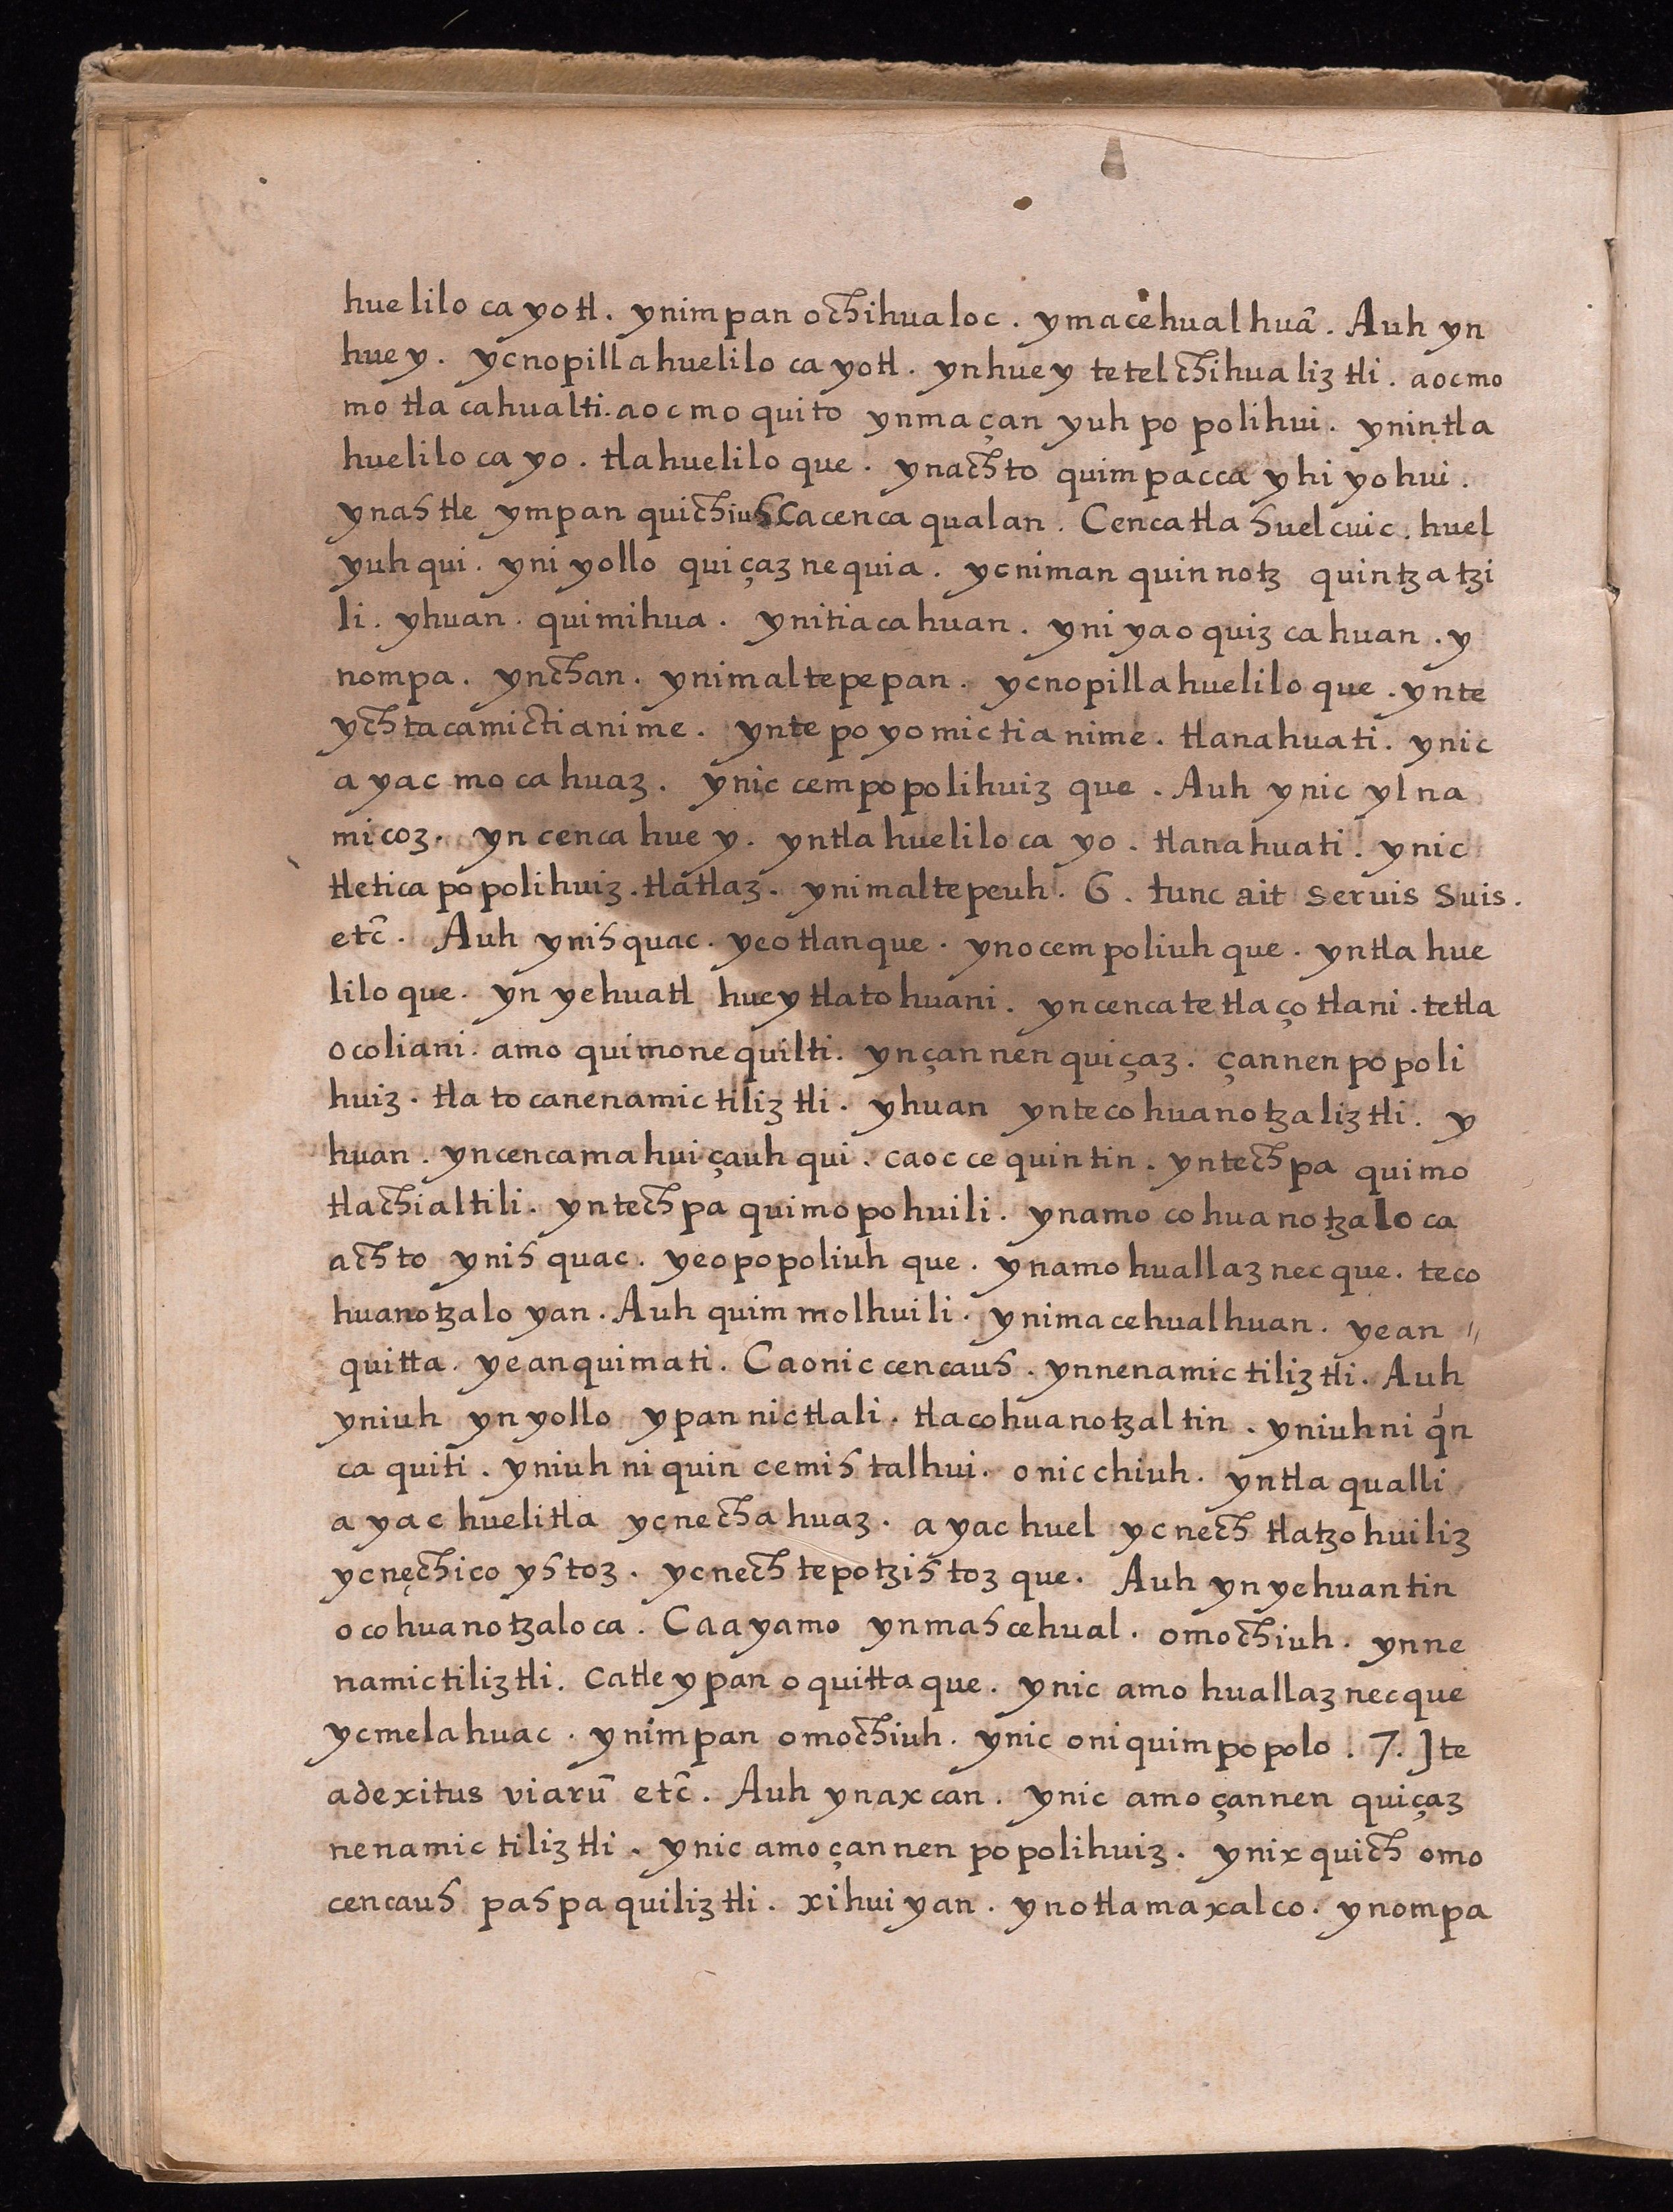 huelilocayotl. ynimpan ochihualoc. ymacehualhuã. Auh yn
huey. ycnopillahuelilocayotl. ynhuey tetelchihualiztli. aocmo
motlacahualti. aocmo quito ynmaçan yuh popolihui. ynintla
huelilocayo. tlahueliloque. ynachto quimpacca yhiyohui.
ynahtle ympan quichiuh Cacenca qualan. Cencatlahuelcuic. huel
yuhqui. yniyollo quiçaznequia. ycniman quinnotz quintzatzi
li. yhuan. quimihua. ynitiacahuan. yniyaoquizcahuan. y
nompa. ynchan. ynimaltepepan. ycnopillahueliloque. ynte
ychtacamictianime. yntepoyomictianime. tlanahuati. ynic
ayac mocahuaz. ynic cempopolihuizque. Auh ynic ylna
micoz. yn cencahuey. yntlahuelilocayo. tlanahuati. ynic
tletica popolihuiz. tlatlaz. ynimaltepeuh. 6. tunc ait seruis suis.
etc̃. Auh ynihquac. yeotlanque. ynocempoliuhque. yntlahue
liloque. yn yehuatl hueytlatohuani. yncencatetlaçotlani. tetla
ocoliani. amo quimonequilti. ynçannenquiçaz. çannenpopoli
huiz. tlatocanenamictiliztli. yhuan yntecohuanotzaliztli. y
huan. yncencamahuiçauhqui. caoccequintin. yntechpa quimo
tlachialtili. yntechpa quimopohuili. ynamo cohuanotzaloca
achto ynihquac. yeopopoliuhque. ynamohuallaznecque. teco
huanotzaloyan. Auh quimmolhuili. ynimacehualhuan. yean "
quitta. yeanquimati. Caonic cencauh. ynnenamictiliztli. Auh
yniuh ynyollo ypannictlali. tlacohuanotzaltin. yniuhni q́n
caquiti. yniuh niquincemihtalhui. onicchiuh. yntlaqualli
ayac huelitla ycnechahuaz. ayachuel ycnech tlatzohuiliz
ycnechicoyhtoz. ycnechtepotzihtozque. Auh ynyehuantin
ocohuanotzaloca. Caayamo ynmahcehual. omochiuh. ynne
namictiliztli. Catleypan oquittaque. ynic amo huallaznecque
ycmelahuac. ynimpan omochiuh. ynic oniquimpopolo. 7. Ite
adexitus viarũ etc̃. Auh ynaxcan. ynic amoçannen quiçaz
nenamictiliztli. ynic amoçannen popolihuiz. ynixquich omo
cencauh pahpaquiliztli. xihuiyan. ynotlamaxalco. ynompa